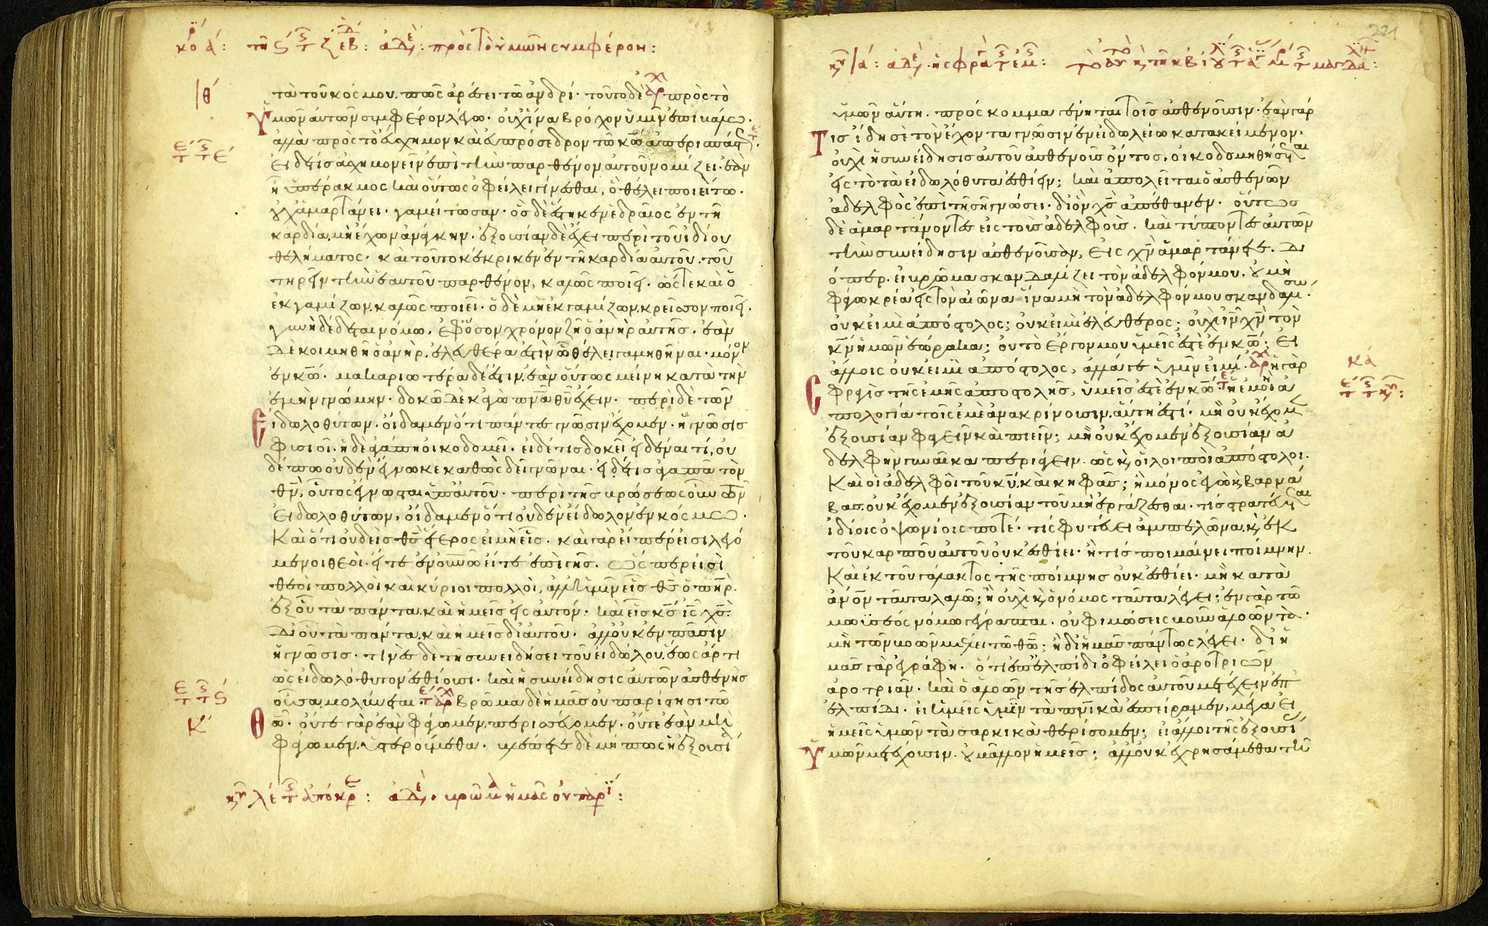 τὰ τοῦ κόσμου. πῶς ἀρέσει τῶ ἀνδρί· τοῦτο δὲ πρὸς τὸ
ὑμῶν αὐτῶν συμφέρον λέγω· οὐχ ἵνα βρόχον ὑμῖν ἐπιβάλω·
ἀλλὰ πρὸς τὸ εὔσχημον καὶ εὐπρόσεδρον τῶ κῶ ἀπερισπάστ
Εἰ δέ τις ἀσχημονεῖν ἐπὶ τὴν παρθένον αὐτοῦ νομίζει· ἐὰν
ἦ ὑπέρακμος καὶ οὕτως ὀφείλει γίνεσθαι, ὃ θέλει ποιείτω·
οὐχ ἁμαρτάνει· γαμείτωσαν· ὃς δὲ ἕστηκεν ἑδραῖος ἐν τῆ
καρδία, μὴ ἔχων ἀνάγκην· ἐξουσίαν δὲ ἔχει περὶ τοῦ ἰδίου
θελήματος· καὶ τοῦτο κέκρικεν ἐν τῆ καρδία αὐτοῦ· τοῦ
τηρεῖν τὴν ἑαυτοῦ παρθένον, καλῶς ποιεῖ· ὥστε καὶ ὁ
ἐκγαμίζων, καλῶς ποιεῖ· ὁ δὲ μὴ ἐκγαμίζων, κρεῖσσον ποιεῖ·
γυνὴ δέδεται νόμω, ἐφ' ὅσον χρόνον ζῆ ὁ ἀνὴρ αὐτῆς· ἐὰν
δὲ κοιμηθῆ ὁ ἀνὴρ, ἐλευθέρα ἐστὶν ὧ θέλει γαμηθῆναι· μόνον
ἐν κῶ· μακαριωτέρα δέ ἐστιν, ἐὰν οὕτως μείνη κατὰ τὴν
ἐμὴν γνώμην· δοκῶ δὲ κἀγὼ πνᾶ θῦ ἔχειν· περὶ δὲ τῶν
εἰδωλοθύτων· οἴδαμεν ὅτι πάντες γνῶσιν ἔχομεν· ἡ γνῶσις
φυσιοῖ· ἡ δὲ ἀγάπη οἰκοδομεῖ· εἰ δέ τις δοκεῖ εἰδέναι τί, οὐ
δέπω οὐδὲν ἔγνωκε καθὼς δεῖ γνῶναι· εἰ δέ τις ἀγαπᾶ τὸν
θν, οὗτος ἔγνωσται ὑπ' αὐτοῦ· περὶ τῆς βρώσεως οὖν τῶν
Εἰδωλοθύτων, οἴδαμεν ὅτι οὐδὲν εἴδωλον ἐν κόσμω·
Καὶ ὅτι οὐδεὶς θς ἕτερος εἰ μὴ εἷς· καὶ γὰρ εἴπερ εἰσὶ λεγό
μενοι θεοὶ· εἴτε ἐν οὐνῶ εἴτε ἐπὶ γῆς· ὥσπερ εἰσὶ
θεοὶ πολλοὶ καὶ κύριοι πολλοὶ, ἀλλ' ἡμῖν εἷς θς ὁ πηρ·
ἐξ οὗ τὰ πάντα, καὶ ἡμεῖς εἰς αὐτόν· καὶ εἷς κς ις χς·
Δι' οὗ τὰ πάντα, καὶ ἡμεῖς δι' αὐτοῦ· ἀλλ' οὐκ ἐν πᾶσιν
ἡ γνῶσις· τινὲς δὲ τῆ συνειδήσει τοῦ εἰδώλου, ἕως ἄρτι
ὡς εἰδωλόθυτον ἐσθίουσι· καὶ ἡ συνείδησις αὐτῶν ἀσθενὴς
οὖσα, μολύνεται· βρῶμα δὲ ἡμᾶς οὐ παρίστησι τῶ
θῶ· οὔτε γὰρ ἐὰν φάγωμεν, περισσεύομεν· οὔτε ἐὰν μὴ
φάγωμεν, ὑστερούμεθα· βλέπετε δὲ μήπως ἡ ἐξουσί
ὑμῶν αὕτη· πρόσκομμα γένηται τοῖς ἀσθενοῦσιν· ἐὰν γάρ
τις ἴδη σὲ τὸν ἔχοντα γνῶσιν ἐν εἰδωλείω κατακείμενον·
οὐχὶ ἡ συνείδησις αὐτοῦ ἀσθενοῦς ὄντος, οἰκοδομηθήσεται
εἰς τὸ τὰ εἰδωλόθυτα ἐσθίειν; καὶ ἀπολεῖται ὁ ἀσθενῶν
ἀδελφὸς ἐπὶ τῆ σῆ γνώσει· δι' ὃν χς ἀπέθανεν· οὕτως
δὲ ἁμαρτάνοντες εἰς τοὺς ἀδελφούς· καὶ τύπτοντες αὐτῶν
τὴν συνείδησιν ἀσθενοῦσαν, Εἰς χν ἁμαρτάνετε· Δι
όπερ· εἰ βρῶμα σκανδαλίζει τὸν ἀδελφόν μου, οὐ μὴ
φάγω κρέα εἰς τὸν αἰῶνα· ἵνα μὴ τὸν ἀδελφόν μου σκανδαλίσω·
οὐκ εἰμὶ ἀπόστολος; οὐκ εἰμὶ ἐλεύθερος; οὐχὶ ιν χν τὸν
κν ἡμῶν ἑώρακα; οὐ τὸ ἔργον μου ὑμεῖς ἐστὲ ἐν κῶ; Εἰ
ἄλλοις οὐκ εἰμὶ ἀπόστολος, ἀλλά γε ὑμῖν εἰμί· ἡ γὰρ
σφραγὶς τῆς ἐμῆς ἀποστολῆς, ὑμεῖς ἐστὲ ἐν κῶ· ἡ ἐμὴ ἀ
πολογία τοῖς ἐμὲ ἀνακρίνουσιν, αὕτη ἐστί· μὴ οὐκ ἔχομεν
ἐξουσίαν φαγεῖν καὶ πιεῖν; μὴ οὐκ ἔχομεν ἐξουσίαν ἀ
δελφὴν γυναῖκα περιάγειν· ὡς καὶ οἱ λοιποὶ ἀπόστολοι·
Καὶ οἱ ἀδελφοὶ τοῦ κυ, καὶ κηφᾶς; ἢ μόνος ἐγὼ καὶ βαρνά
βας, οὐκ ἔχομεν ἐξουσίαν τοῦ μὴ ἐργάζεσθαι· τίς στρατεύεται
ἰδίοις ὀψωνίοις ποτέ· τίς φυτεύει ἀμπελῶνα, καὶ ἐκ
τοῦ καρποῦ αὐτοῦ οὐκ ἐσθίει· ἢ τίς ποιμαίνει ποίμνην·
Καὶ ἐκ τοῦ γάλακτος τῆς ποίμνης οὐκ ἐσθίει· μὴ κατὰ
ἄνον ταῦτα λαλῶ; ἢ οὐχὶ καὶ ὁ νόμος ταῦτα λέγει; ἐν γὰρ τῶ
μωϋσέος νόμω γέγραπται· οὐ φιμώσεις βοῦν ἀλοῶντα·
μὴ τῶν βοῶν μέλει τῶ θῶ; ἢ δι' ἡμᾶς πάντως λέγει· δι' ἡ
μᾶς γὰρ ἐγράφη· ὅτι ἐπ' ἐλπίδι ὀφείλει ὁ ἀροτριῶν
ἀροτριᾶν· καὶ ὁ ἀλοῶν τῆς ἐλπίδος αὐτοῦ μετέχειν ἐπ'
ἐλπίδι· εἰ ἡμεῖς ὑμῖν τὰ πνικὰ ἐσπείραμεν, μέγα εἰ
ἡμεῖς ὑμῶν τὰ σαρκικὰ θερίσομεν; εἰ ἄλλοι τῆς ἐξουσί
ὑμῶν μετέχουσιν· οὐ μᾶλλον ἡμεῖς; ἀλλ' οὐκ ἐχρησάμεθα τῆ